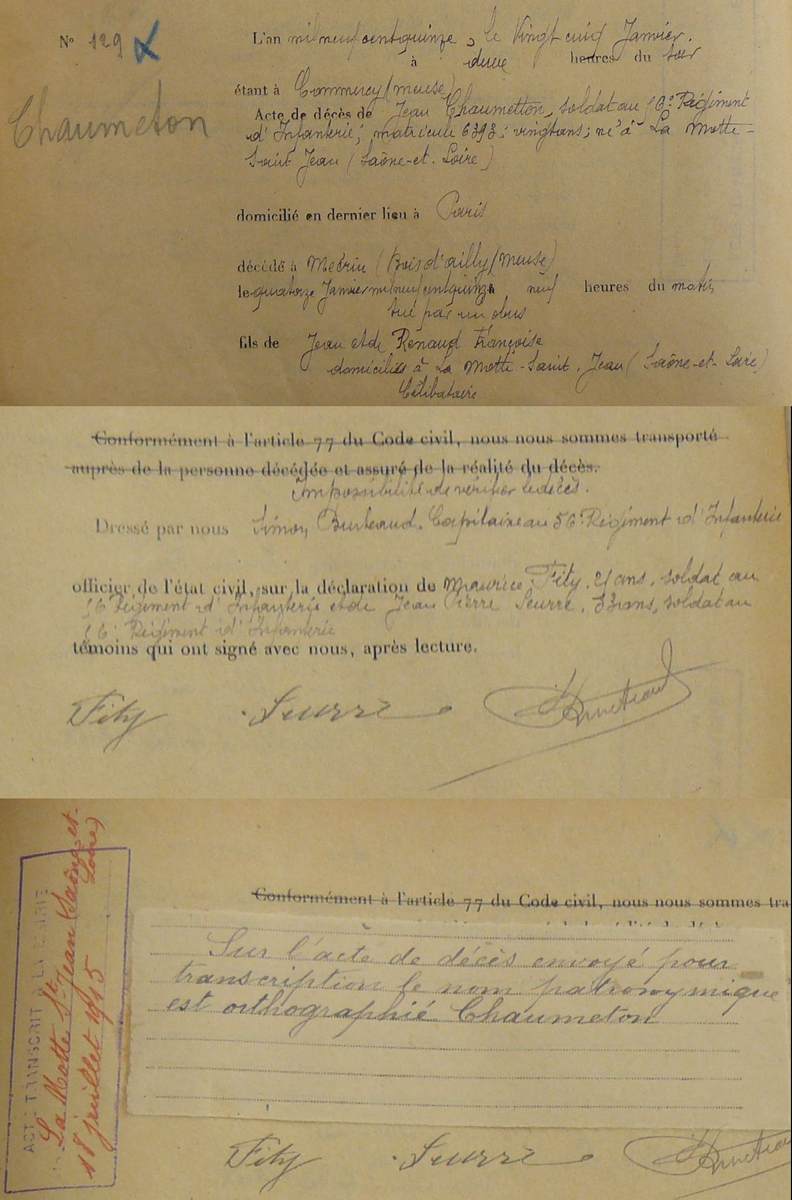 N° 129
L'an mil neuf cent quinze, le Vingt cinq Janvier.
à heures du soir
étant à Commercy (meuse)
Chaumeton
Acte de décès de Jean Chaumetton, soldat au 56e Régiment
d'Infanterie; matricule 6393; vingt ans; né à La Motte-
Saint Jean (Saône-et-Loire)
domicilié en dernier lieu à Paris
décédé à Mécrin (Bois d'ailly/meuse)
le quatorze Janvier mil neuf cent quinze à neuf heures du matin
tué par un obus
fils de Jean et de Renaud Françoise
domiciliés à La Motte-Saint-Jean (Saône-et-Loire)
Célibataire
Conformément à l'article 77 du Code civil, nous nous sommes transporté
auprès de la personne décédée et assuré de la réalité du décès.
impossibilité de vérifier le décès.
Dressé par nous Simon, Capitaine au 56e Régiment d'Infanterie
officier de l'état civil, sur la déclaration de Maurice Fity, 21 ans, soldat au
56e Régiment d'Infanterie et de Jean Pierre Seurre, ans, soldat au
56e Régiment d'Infanterie
témoins qui ont signé avec nous, après lecture.
Fity Seurre
Conformément à l'article 77 du Code civil, nous nous sommes tra
Sur l'acte de décès envoyé pour
transcription le nom patronymique
est orthographié Chaumeton
ACTE TRANSCRIT À LA MAIRIE
La Motte St Jean (Saône-et-
Loire)
18 juillet 1915
Fity Seurre